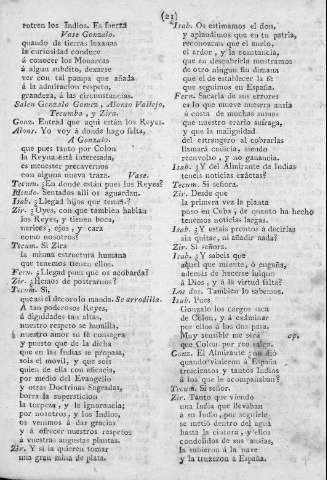 (21)
entren los Indios. Es fuerza
Vase Gonzalo.
quando de tierras lexanas
la curiosidad conduce
á conocer los Monarcas
á algun subdito, dexarse
ver con tal pompa que añada
á la admiracion respeto,
grandeza, á las circunstancias.
Salen Gonzalo Gomez, Alonso Vallejo,
Tecumba, y Zira.
Gonz. Entrad que aquí están los Reyes.
Alons. Yo voy á donde hago falta,
A Gonzalo.
que pues tanto por Colon
la Reyna está interesada,
es menester precavernos
con alguna nueva traza. Vase.
Tecum. ¿En donde están pues los Reyes?
Mendo. Sentados allí os aguardan.
Isab. ¿Llegad hijos que temeis?
Zir. ¿Oyes, con que tambien hablan
los Reyes, y tienen boca,
narices, ojos, y cara
como nosotros?
Tecum. Si Zira
la misma estructura humana
que tenemos tienen ellos.
Fern. ¿Llegad pues que os acobarda?
Zir. ¿Hemos de postrarnos?
Tecum. Si,
que así el decoro lo manda. Se arrodilla.
A tan poderosos Reyes,
á dignidades tan altas,
nuestro respeto se humilla,
nuestro amor su fé consagra
y puesto que de la dicha
que en las Indias se propaga,
sois el movil, y que sois
quien de ella con eficacia,
por medio del Evangelio
y otras Doctrinas Sagradas,
borra la supersticion
la torpeza, y la ignorancia;
por nosotros, y los Indios,
os venimos á dar gracias
y á ofrecer nuestros respetos
á vuestras augustas plantas.
Zir. Y si la quieren tomar
una gran mina de plata.
Isab. Os estimamos el don,
y aplaudimos que en tu patria,
reconozcan que el zuelo,
el ardor, y la constancia,
que en descubrirla mostramos
de otro ningun fin dimana
que el de establecer la fé
que seguimos en España.
Fern. Sacarla de sus errores
es lo que mueve nuestra ansia
á costa de muchas sumas
que nuestro erario extrahiga,
y que la malignidad
del estrangero al cobrarlas
llamará codicia, siendo
reenvolso, y no ganancia.
Isab. ¿Y del Almirante de Indias
teneis noticias exáctas?
Tecum. Si señora.
Zir. Desde que
la primera vez la planta
puso en Cuba, de quanto ha hecho
tenemos noticias largas.
Isab. ¿Y estais prontos á decirlas
sin quitar, ni añadir nada?
Zir. Si señora.
Isab. ¿Y sabeis que
aquel que miente, ó engaña,
además de hacerse injuria
á Dios, y á la virtud falta?
Los dos. Tambien lo sabemos.
Isab. Pues
Gonzalo los cargos saca
de Colon, y á exâminar
por ellos á los dos pasa.
Muy sensible me será ap.
que Colon por reo salga.
Gonz. El Almirante ¿no dió
quando vinieron á España
trecientos y tantos Indios
á los que le acompañaban?
Tecum. Si señor.
Zir. Tanto que viendo
una India que llevaban
á su Indio, por seguirle
se metió dentro del agua
hasta la cintura, y ellos
condolidos de sus ansias,
la subieron á la nave
y la truxeron á España.